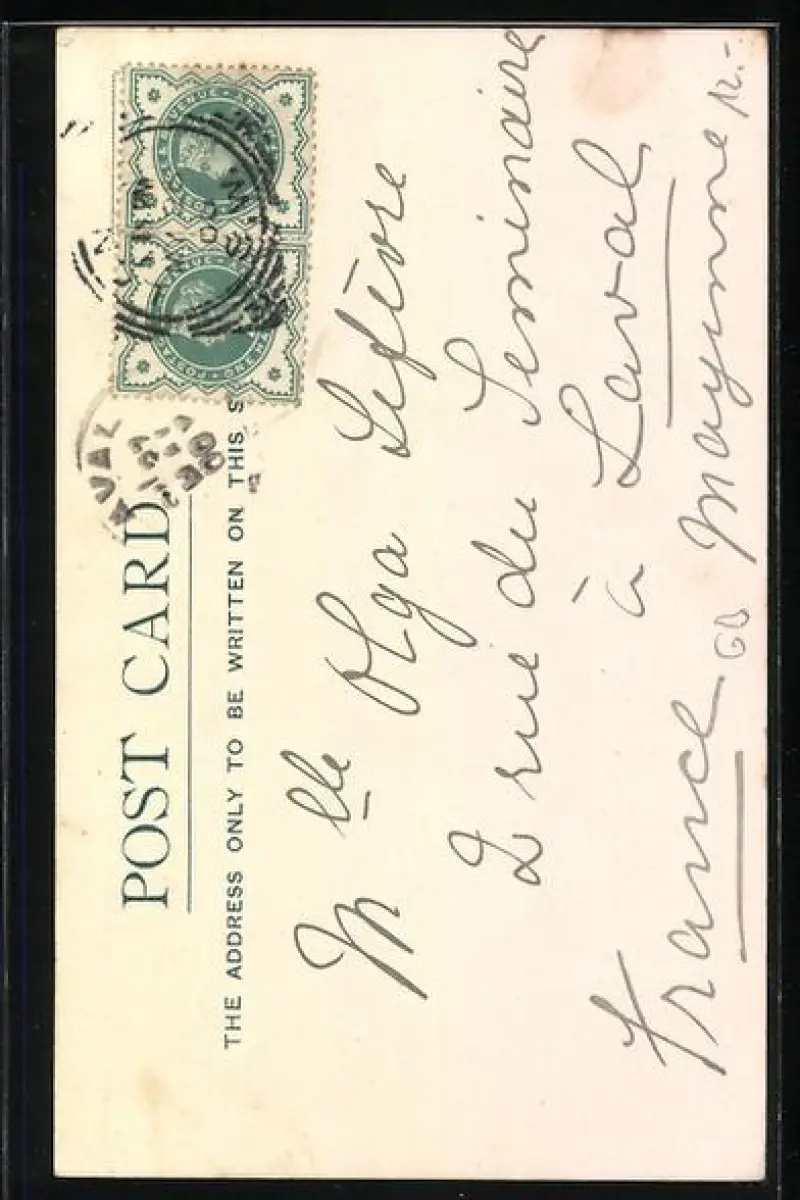 POST CARD
THE ADDRESS ONLY TO BE WRITTEN ON THIS S
Mlle Olga Lefèvre
2 rue du Seminaire
à Laval
Mayenne
France
GB